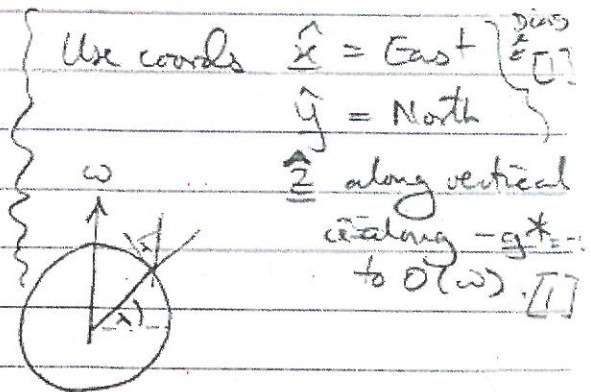 Use coords x̂ = East
ŷ = North
ẑ along vertical
ie along -g*
to O(ω). [1]
ω
λ
λ
[1]